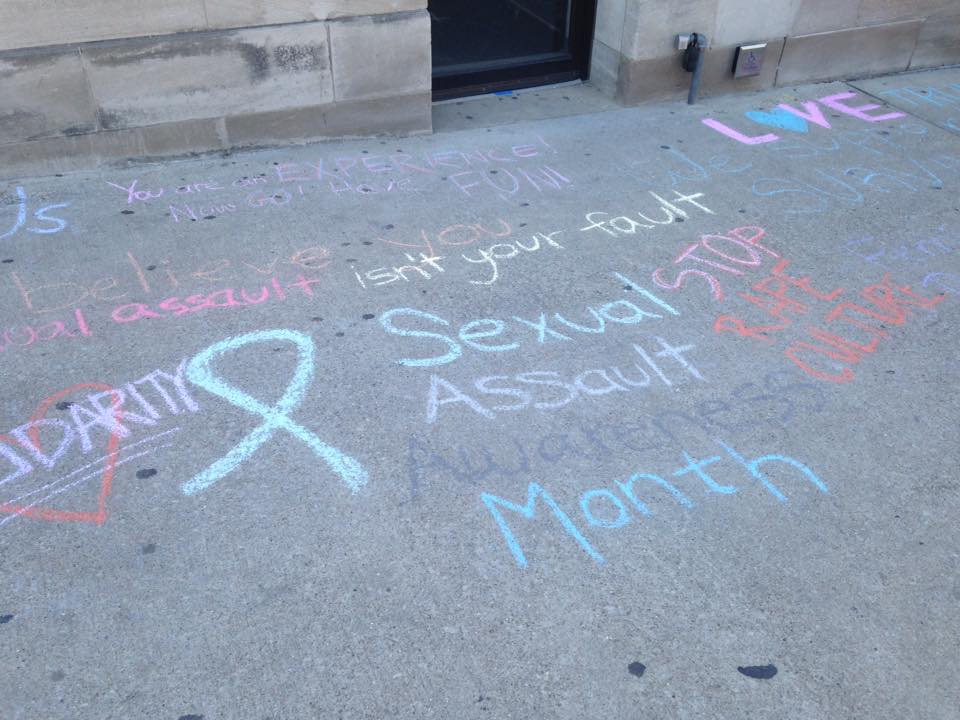 LOVE
You are an EXPERIENCE!
Now Go! Have FUN!
Us
believe You
isn't your fault
sexual assault
STOP
RAPE
CULTURE
Sexual
Assault
Awareness
Month
SOLIDARITY